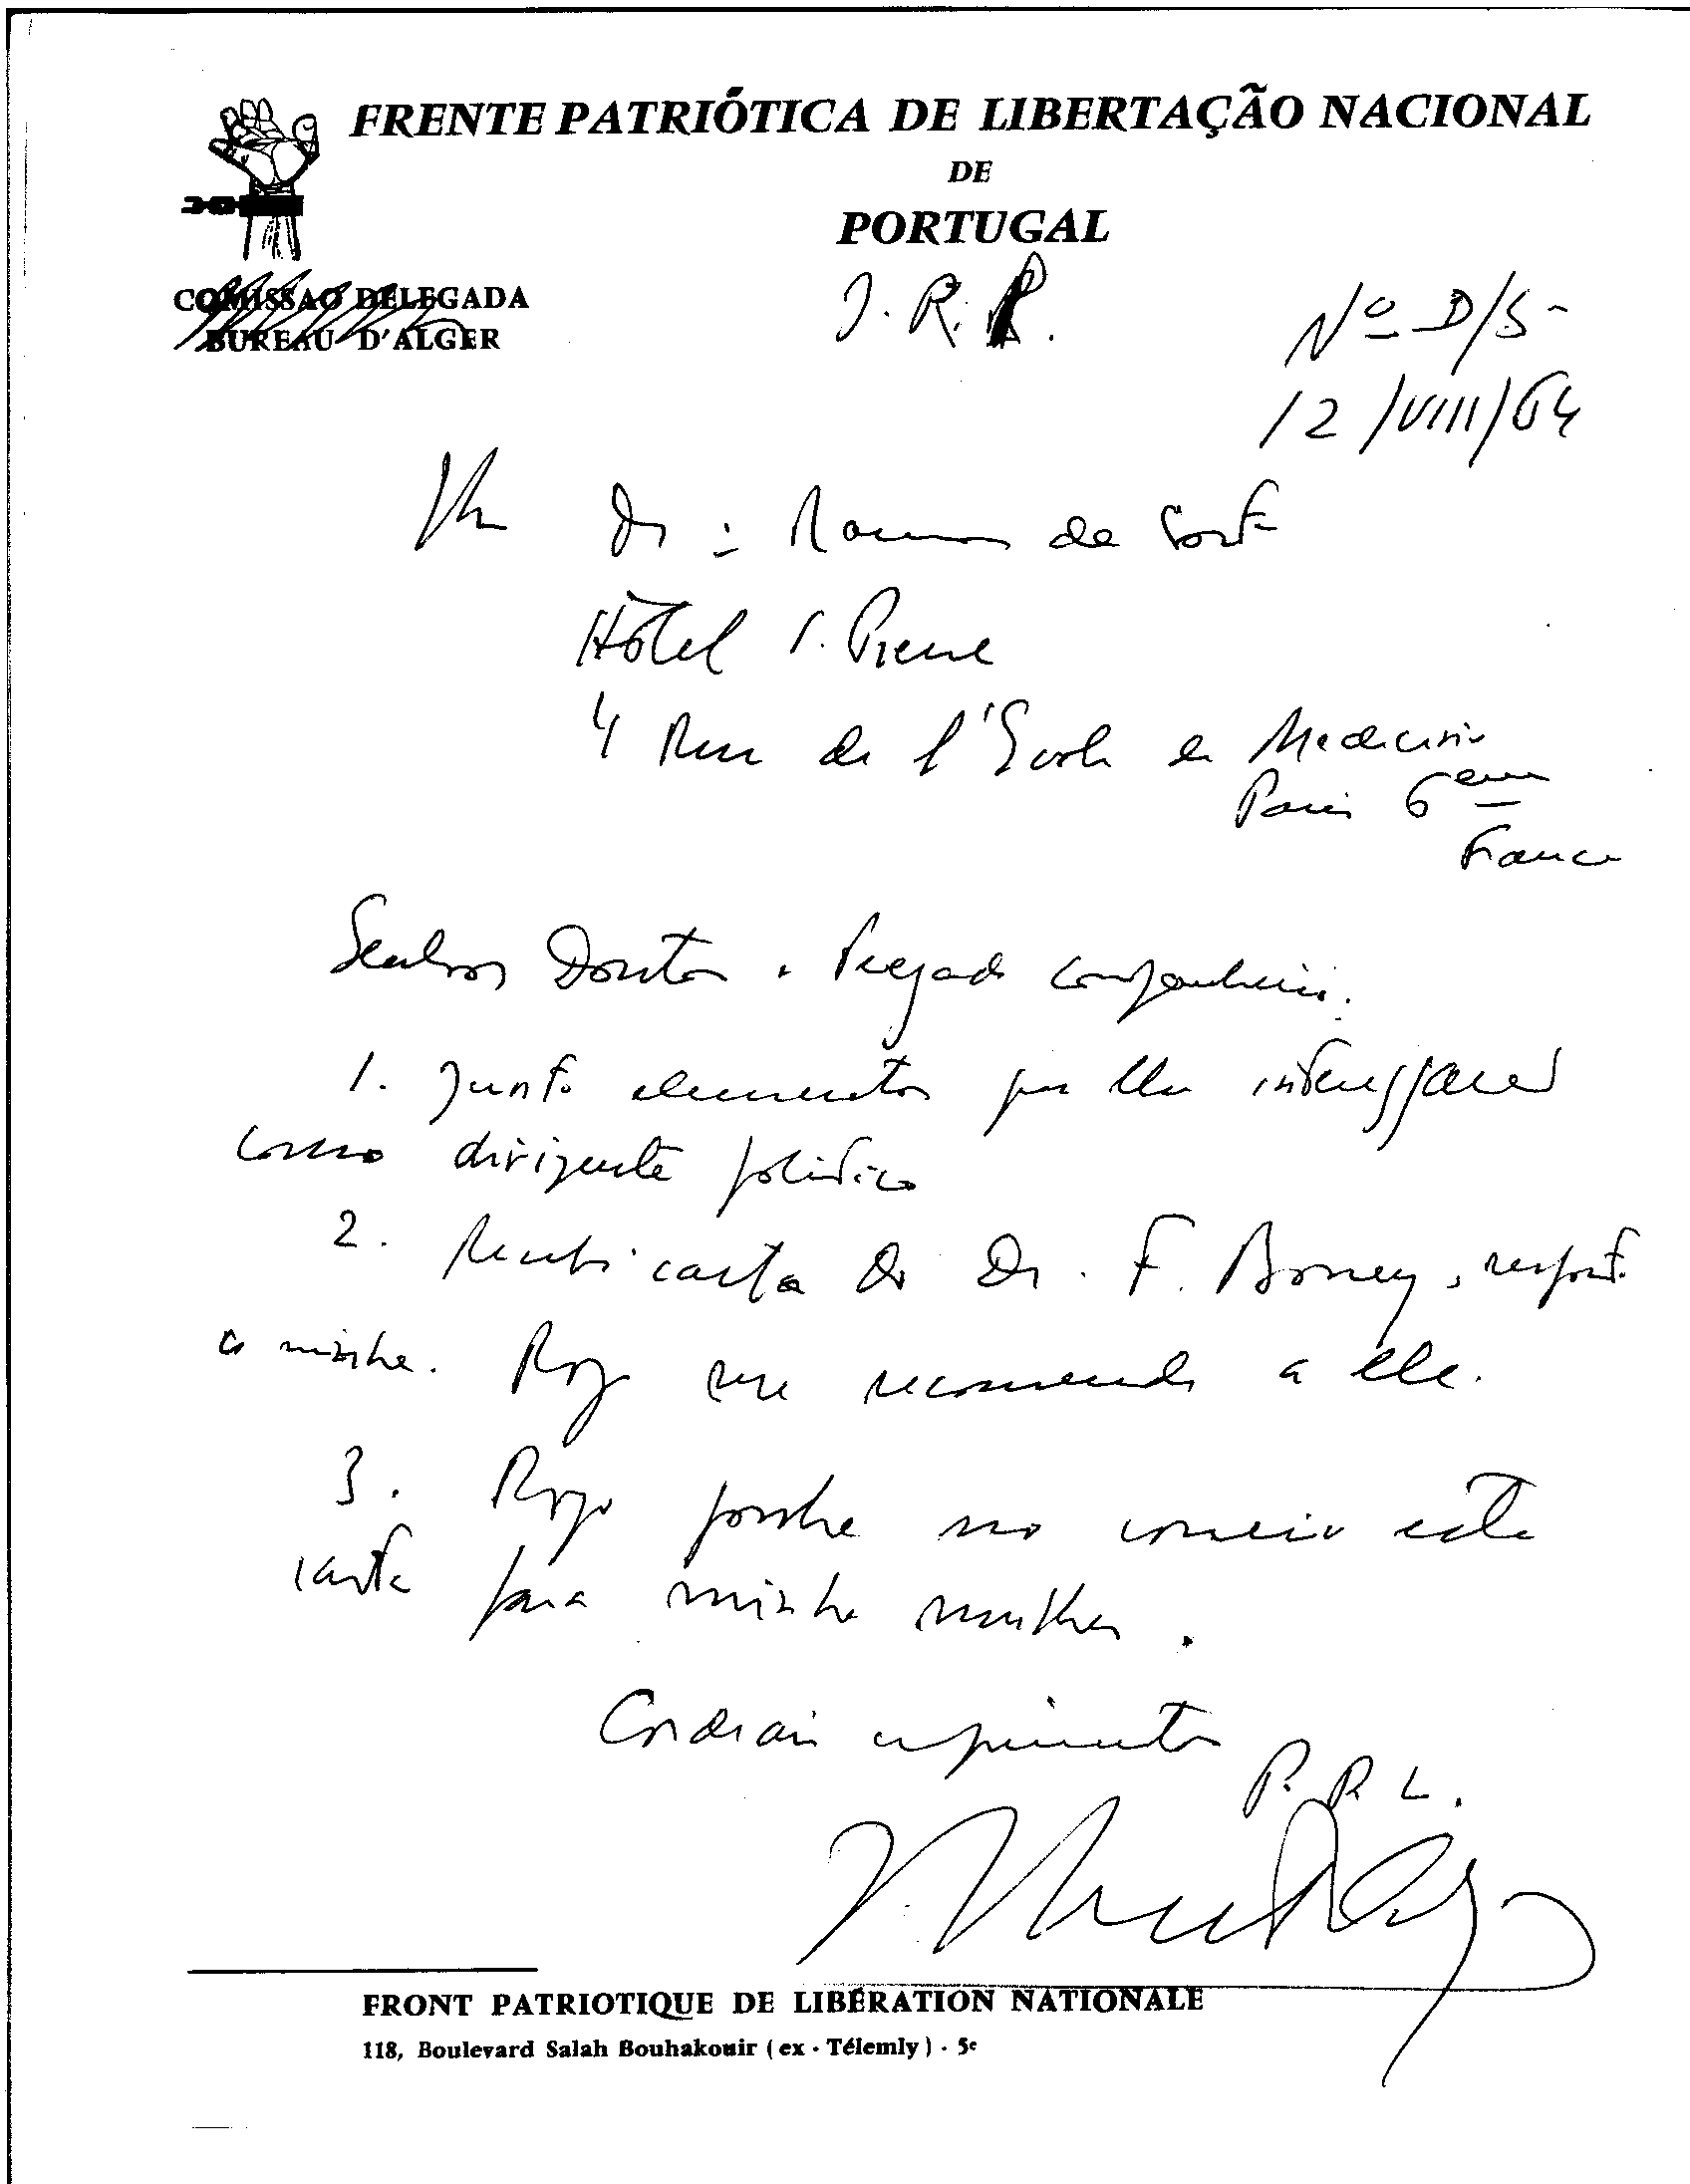 FRENTE PATRIÓTICA DE LIBERTAÇÃO NACIONAL
DE
PORTUGAL
COMISSAO DELEGADA
BUREAU D'ALGER
J. R. P.
Nº D/S-
12/VIII/64
Dr : Ramos da Costa
Hôtel S. Pierre
4 Rue de l'Ecole de Medecine
Paris 6eme
France
Senhor Doutor e Prezado companheiro.
1. Junto elementos que lhe interessarem
como dirigente politico
2. Recebi carta do Dr. F. Borney, resposta
a minha. Rogo me recomende a ele.
3. Rogo ponha no correio esta
carta para minha mulher.
Cordiais cumprimentos
P. R. L.
FRONT PATRIOTIQUE DE LIBÉRATION NATIONALE
118, Boulevard Salah Bouhakouir (ex - Télemly) - 5e